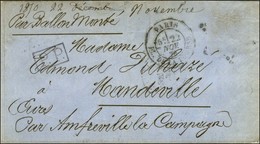 1870 22 décembre, Novembre
Par Ballon Monté
PARIS
NOV
Madame
Edmond
Mandeville
Eure
Par Amfreville la Campagne